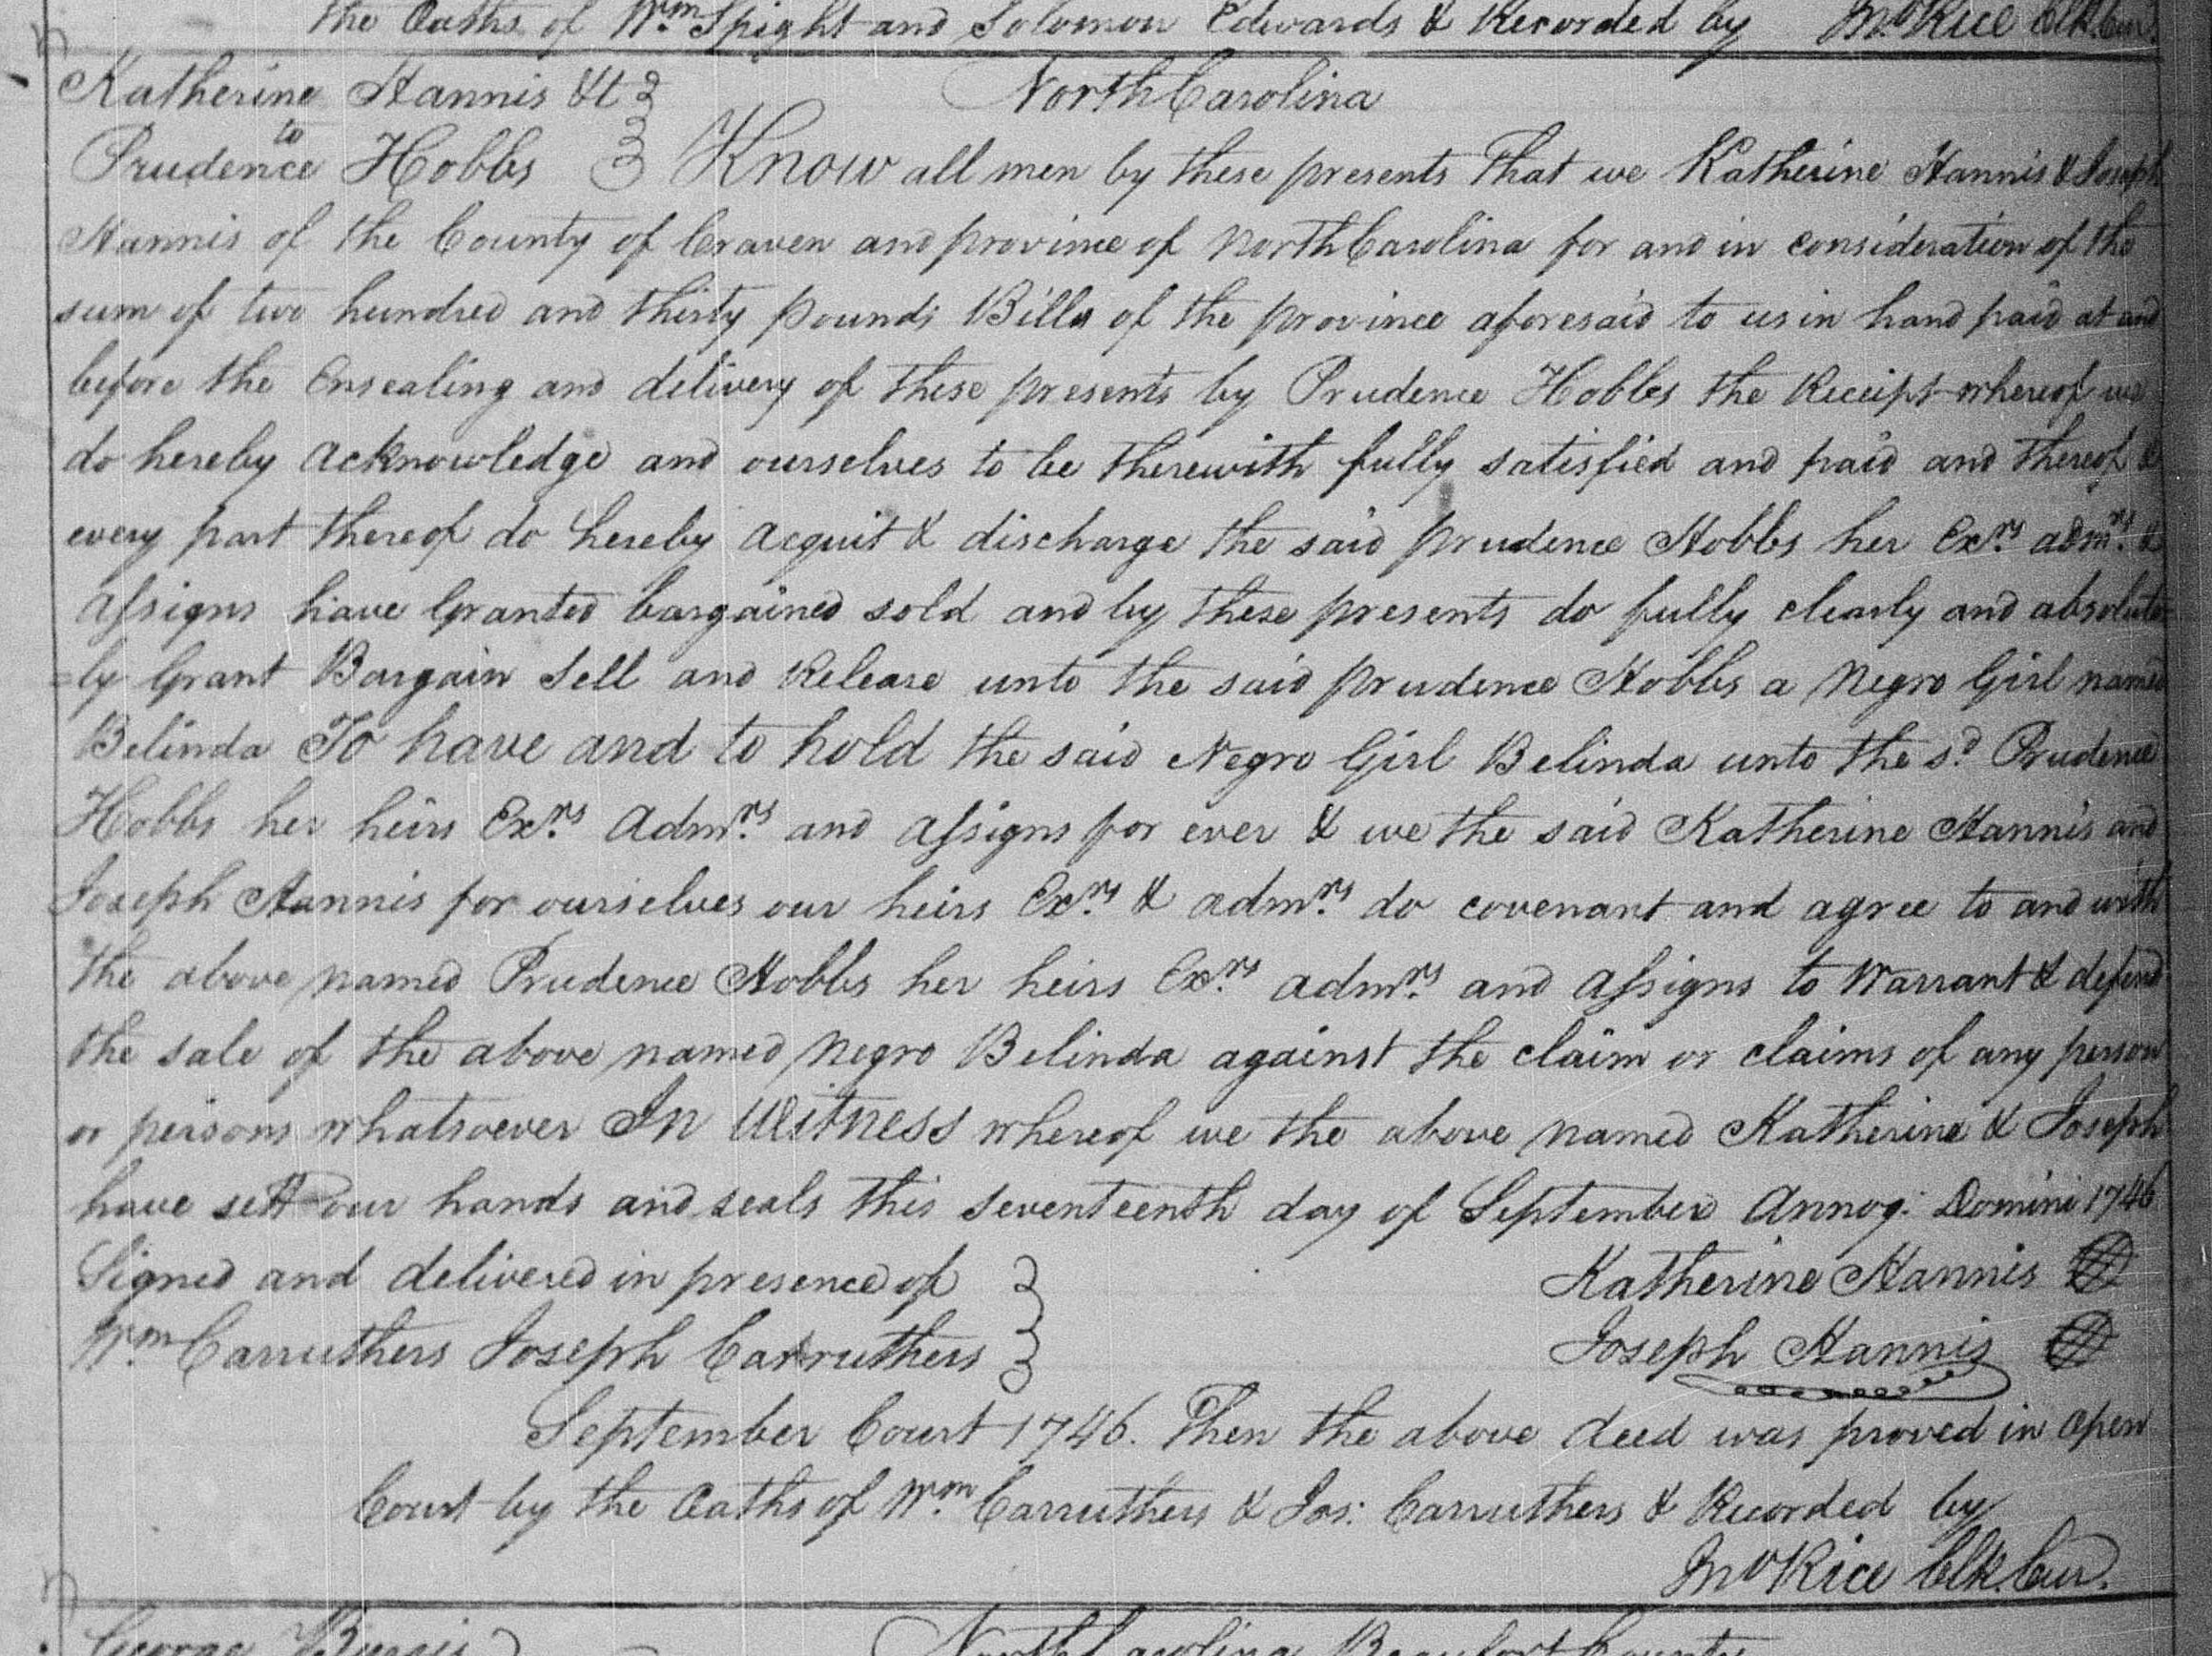 the Oaths of Wm. Spight and Solomon Edwards & Recorded by Jno Rice Clk. Cur.
Katherine Hannis &t
North Carolina
to
Prudence Hobbs Know all men by these presents That we Katherine Hannis & Joseph
Hannis of the County of Craven and province of North Carolina for and in consideration of the
sum of two hundred and thirty pounds Bills of the province aforesaid to us in hand paid at and
before the Ensealing and delivery of these presents by Prudence Hobbs the Receipt whereof we
do hereby acknowledge and ourselves to be therewith fully satisfied and paid and thereof &
every part thereof do hereby acquit & discharge the said prudence Hobbs her Exrs. admrs. &
assigns have Granted bargained sold and by these presents do fully clearly and absolute
=ly Grant Bargain Sell and Release unto the said prudence Hobbs a Negro Girl named
Belinda To have and to hold the said Negro Girl Belinda unto the sd. Prudence
Hobbs her heirs Exrs. Admrs. and assigns for ever & we the said Katherine Hannis and
Joseph Hannis for ourselves our heirs Exrs. & admrs. do covenant and agree to and with
the above named Prudence Hobbs her heirs Exrs. admrs. and assigns to Warrant & defend
the sale of the above named Negro Belinda against the claim or claims of any person
or persons whatsoever In Witness whereof we the above named Katherine & Joseph
have sett our hands and seals this seventeenth day of September Annoq: Domini 1746
Signed and delivered in presence of
Katherine Hannis
Wm. Carruthers Joseph Carruthers
Joseph Hannis
September Court 1746. Then the above deed was proved in open
Court by the Oaths of Wm. Carruthers & Jos: Carruthers & Recorded by
Jno Rice Clk. Cur.
George
North Carolina Beaufort County